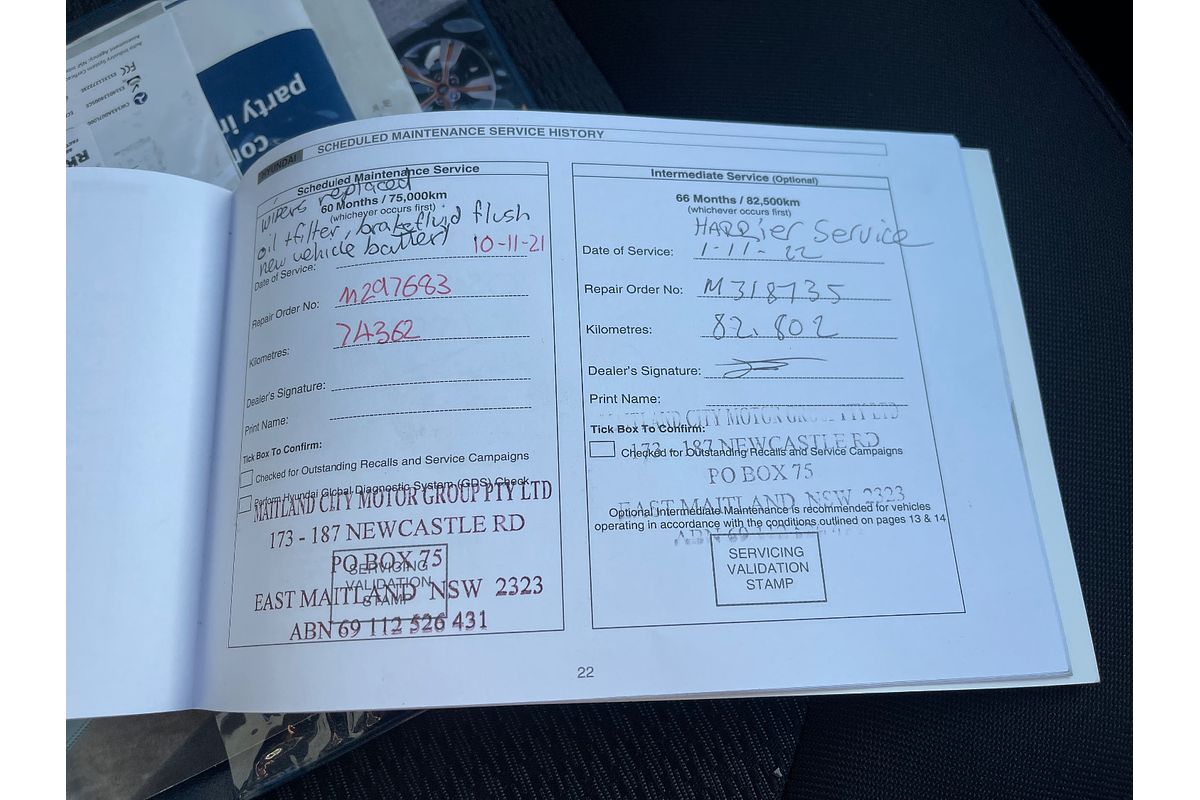 party in
HYUNDAI
SCHEDULED MAINTENANCE SERVICE HISTORY
Scheduled Maintenance Service
wipers replaced
60 Months / 75,000km
(whichever occurs first)
oil + filter, brake fluid flush
new vehicle battery
10-11-21
Date of Service:
Repair Order No: M297683
Kilometres: 74362
Dealer's Signature:
Print Name:
Tick Box To Confirm:
Checked for Outstanding Recalls and Service Campaigns
Perform Hyundai Global Diagnostic System (GDS) Check
MAITLAND CITY MOTOR GROUP PTY LTD
173 - 187 NEWCASTLE RD
PO BOX 75
SERVICING
VALIDATION
STAMP
EAST MAITLAND NSW 2323
ABN 69 112 526 431
Intermediate Service (Optional)
66 Months / 82,500km
(whichever occurs first)
HARRier Service
Date of Service: 1-11-22
Repair Order No: M318735
Kilometres: 82.802
Dealer's Signature:
Print Name:
MAITLAND CITY MOTOR GROUP PTY LTD
Tick Box To Confirm:
173 - 187 NEWCASTLE RD
Checked for Outstanding Recalls and Service Campaigns
PO BOX 75
EAST MAITLAND NSW 2323
Optional Intermediate Maintenance is recommended for vehicles
operating in accordance with the conditions outlined on pages 13 & 14
ABN 69
SERVICING
VALIDATION
STAMP
22